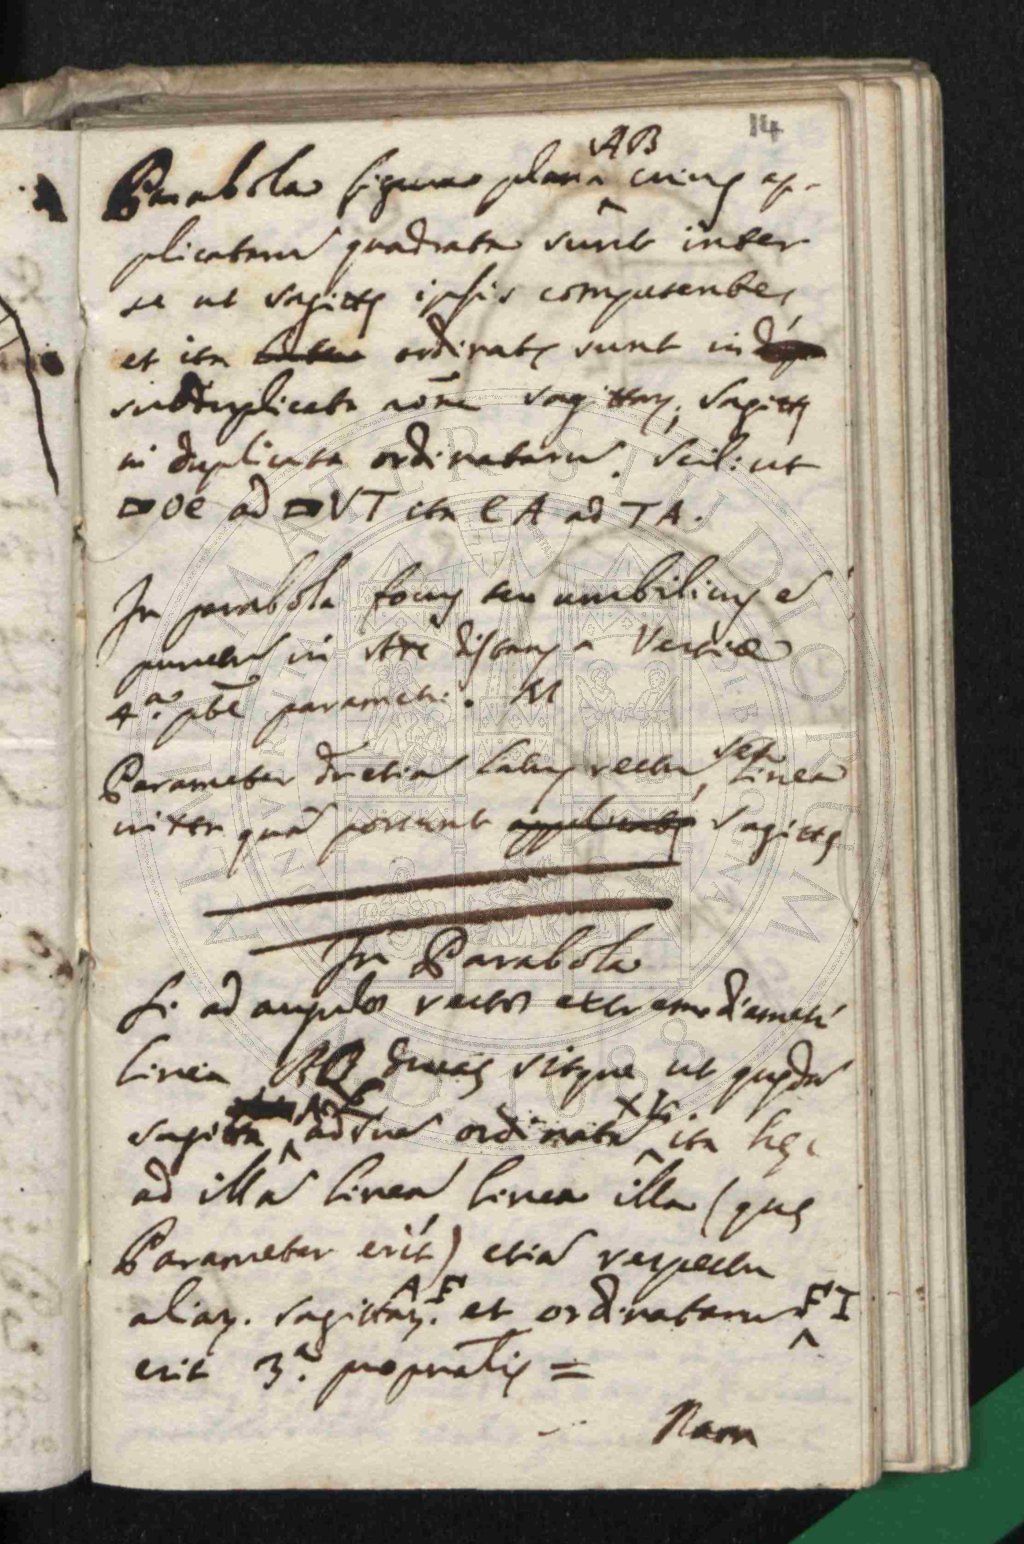 14
AB
Parabola figura plana cuius ap-
plicatarũ quadrata sunt inter
se ut sagittę ipsis competentes,
et ita ordinatę sunt in
subduplicata rõne sagittarũ, sagittę
in duplicata ordinatarũ. Scil: ut
▭OE ad ▭VT ita EA ad TA.
In parabola focus seu umbilicus ẽ
punctũ in axe distans a vertice
4.ª pte parametri. M
Parameter dr etiã latus rectũ, seu linea
iuxta quã possunt applicatę sagittę
In Parabola
Si ad angulos rectos extremo diametri
linea AB ducat, sitque ut quędã
AE XL
sagitta ad suã ordinatã ita hęc
ad illã lineã linea illa (quę
Parameter erit) etiã respectu
AF
aliarũ sagittarũ et ordinatarũ FI
erit 3.ª proptnalis =
Nam